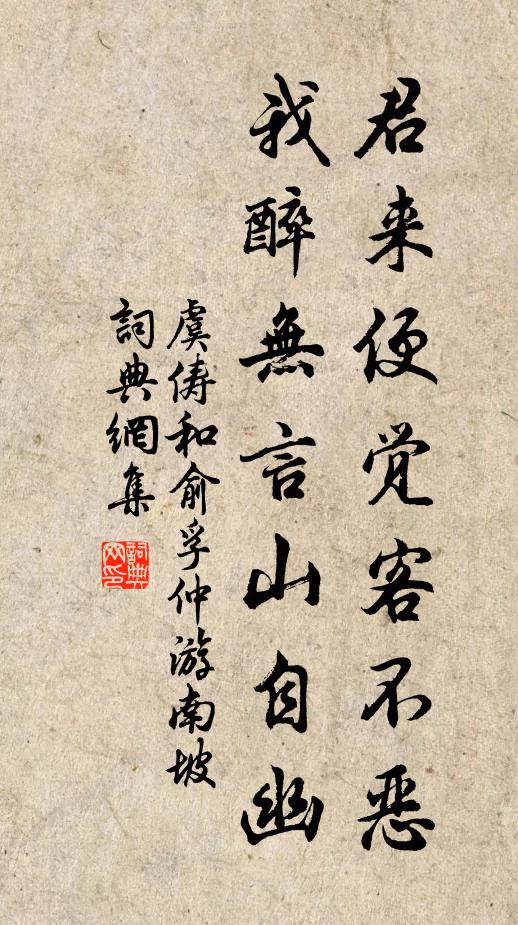 君来便觉客不恶
我醉無言山自幽
虞俦和俞孚仲游南坡
詞典網集
詞典网印